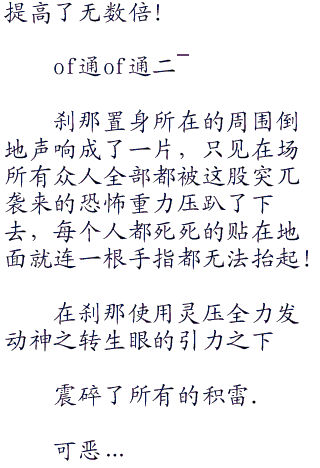 提高了无数倍!
of通of通二¯
刹那置身所在的周围倒
地声响成了一片，只见在场
所有众人全部都被这股突兀
袭来的恐怖重力压趴了下
去，每个人都死死的贴在地
面就连一根手指都无法抬起!
在刹那使用灵压全力发
动神之转生眼的引力之下
震碎了所有的积雷.
可恶...